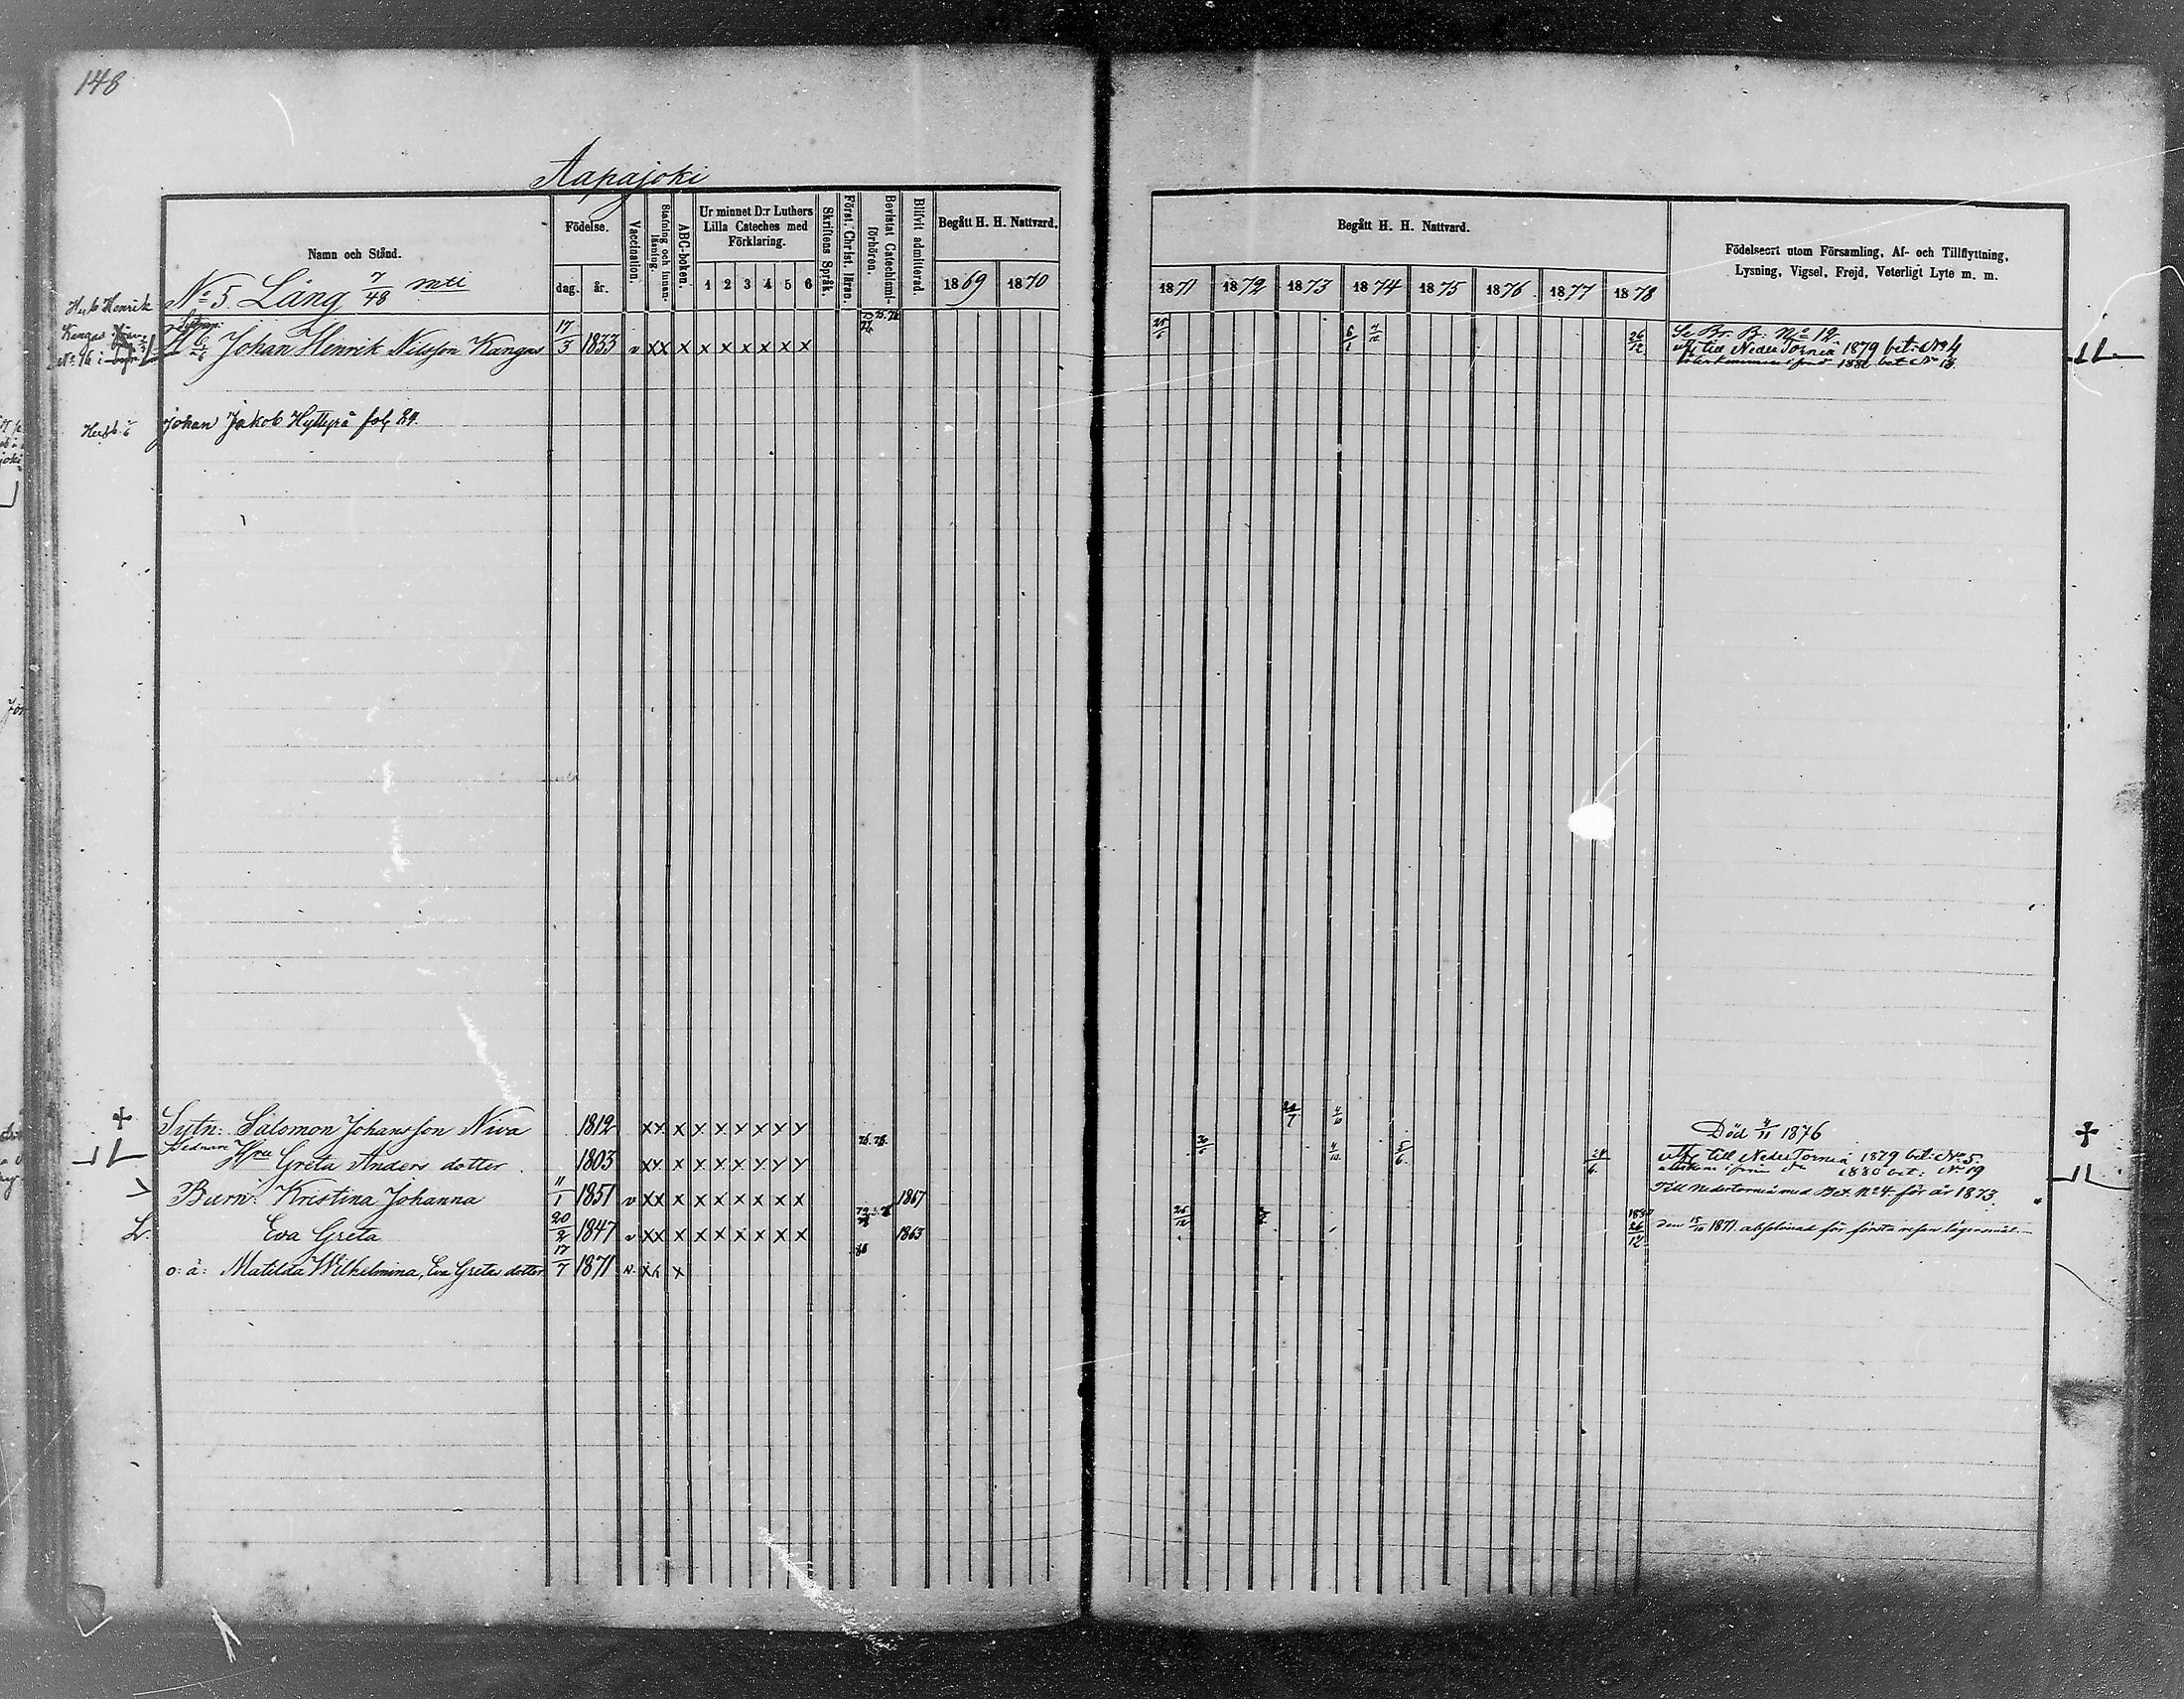 148
Aapajoki
Namn och Stånd.
Födelse.
dag. år.
Vaccination.
Stafning och innan-läsning.
ABC-boken.
Ur minnet D:r Luthers Lilla Cateches med Förklaring.
1 2 3 4 5 6
Skriftens Språk.
Först. Christ. läran.
Bevistat Catechismi-förhören.
Blifvit admitterad.
Begått H. H. Nattvard.
1869 1870
Begått H. H. Nattvard.
1871 1872 1873 1874 1875 1876 1877 1878
Födelseort utom Församling, Af- och Tillflyttning,
Lysning, Vigsel, Frejd, Veterligt Lyte m. m.
No 5. Lång 7/48 mtl
Henrik
Kangas
No 16 i
Johan Henrik Nilsson Kangas 17/3 1833 v xx x x x x x x x 26/12
Se Br. B. No 12
utfl till Neder Torneå 1879 bet: No 4
1880 bet No 13.
Johan Jakob Hyttyrä fol. 89.
+ Sytn: Salomon Johansson Niva 1812 xx x x x x x x x 4/10 Död 4/11 1876 +
Hru Greta Anders dotter 1803 xx x x x x x x x 5/6 utfl till Neder Torneå 1879 bet: No 5.
1880 bet: No 19
Barn: Kristina Johanna 11/1 1851 v xx x x x x x x x 1867 Till Nedertorneå med Bet. No 4 för år 1873.
Eva Greta 20/2 1847 v xx x x x x x x x 1863 26/12 26/12 den 15/10 1871 absolverad för första resan lägersmål
o: ä: Matilda Wilhelmina, Eva Gretas dotter 17/7 1871 v. xx x